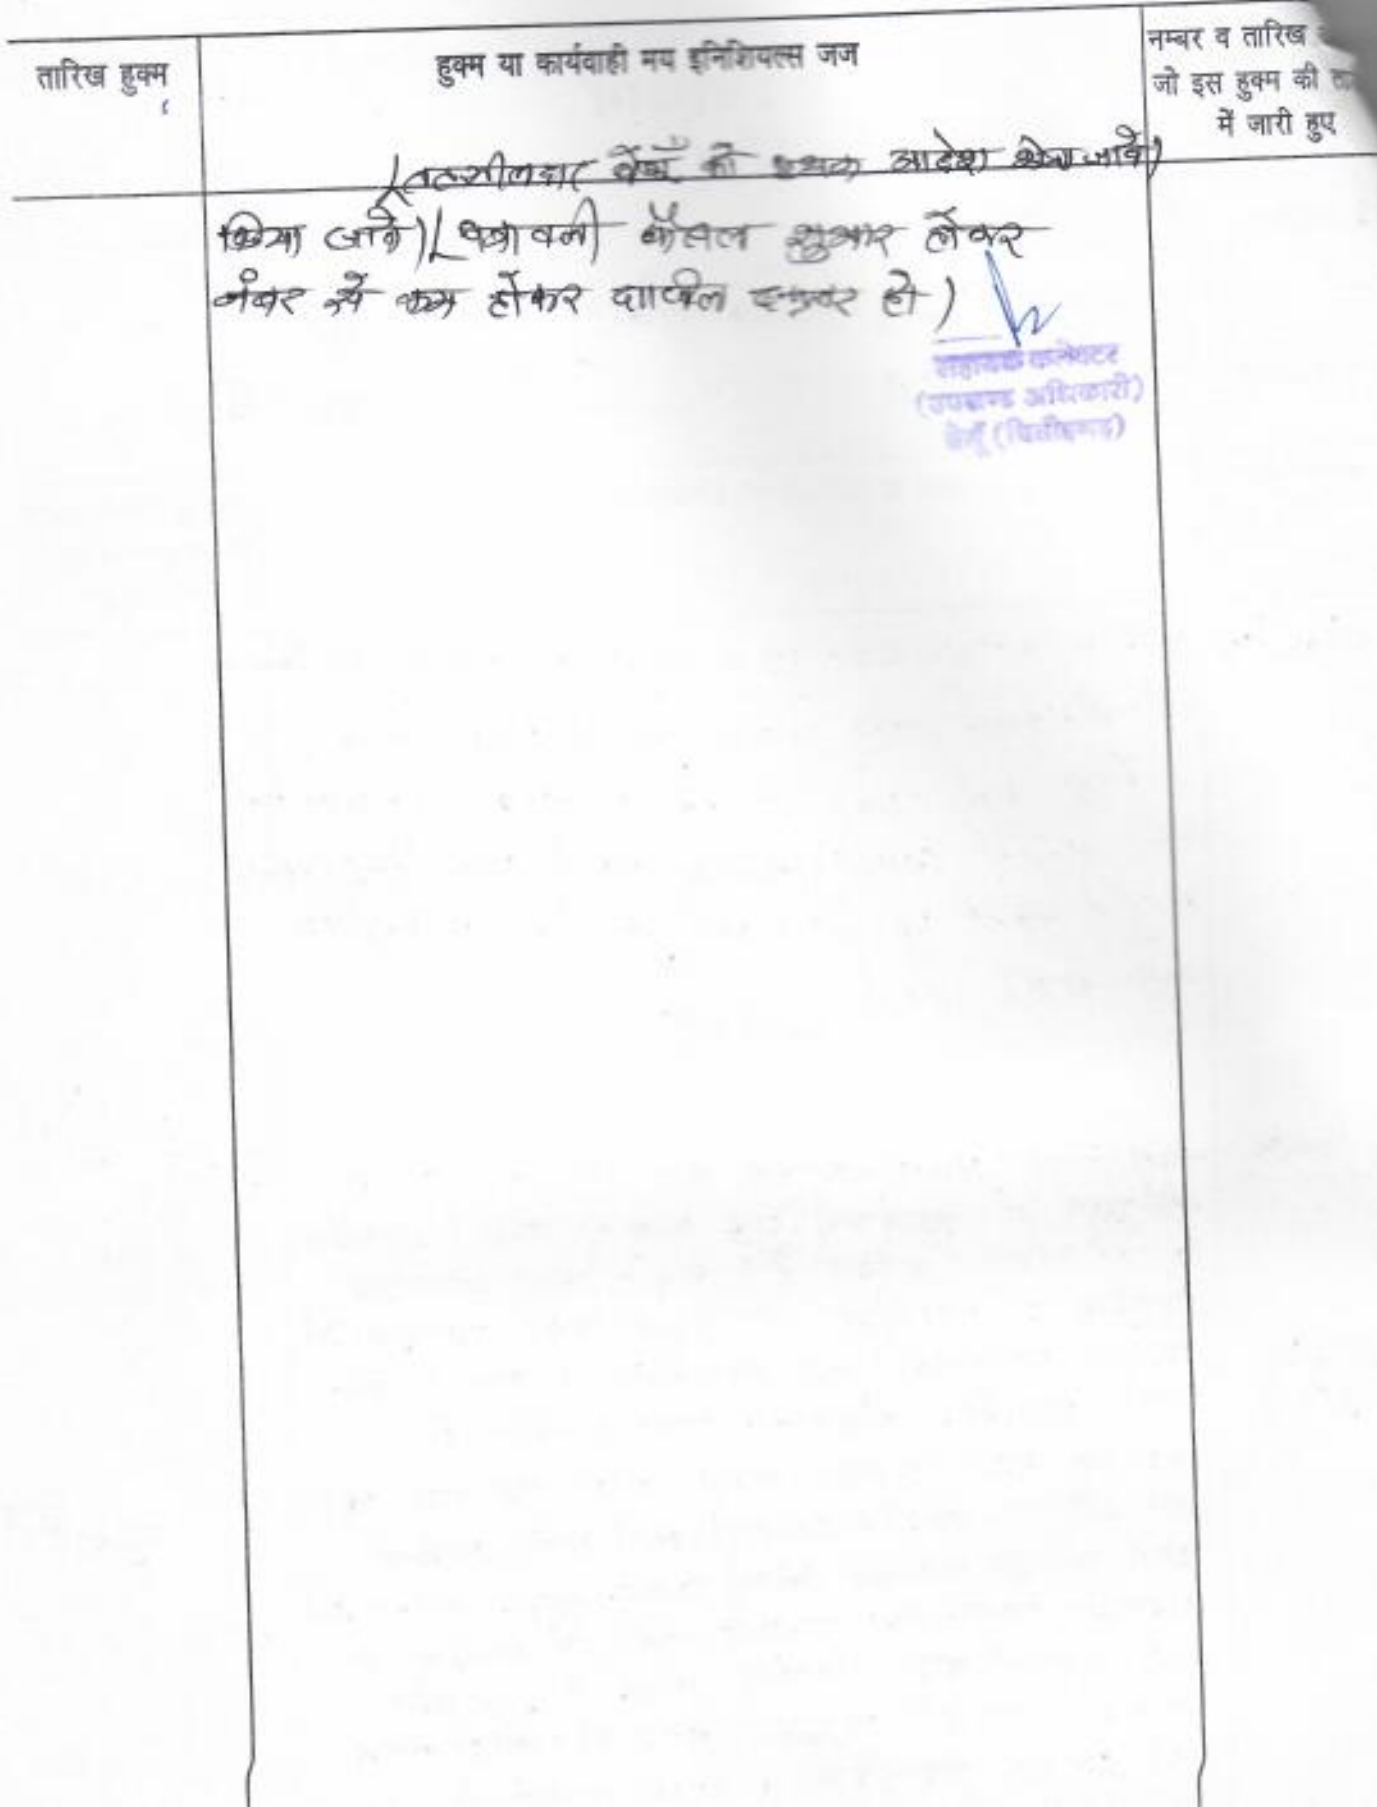 तारिख हुक्म
हुक्म या कार्यवाही मय इनिशियल्स जज
नम्बर व तारिख
जो इस हुक्म की
में जारी हुए
(तहसीलदार बेगूँ को पृथक आदेश भेजा जावे)
किया जावे) (पत्रावली फैसल शुमार होकर
नंबर से कम होकर दाखील दफ्तर हो)
सहायक कलेक्टर
(उपखण्ड अधिकारी)
बेगूँ (चित्तौड़गढ़)